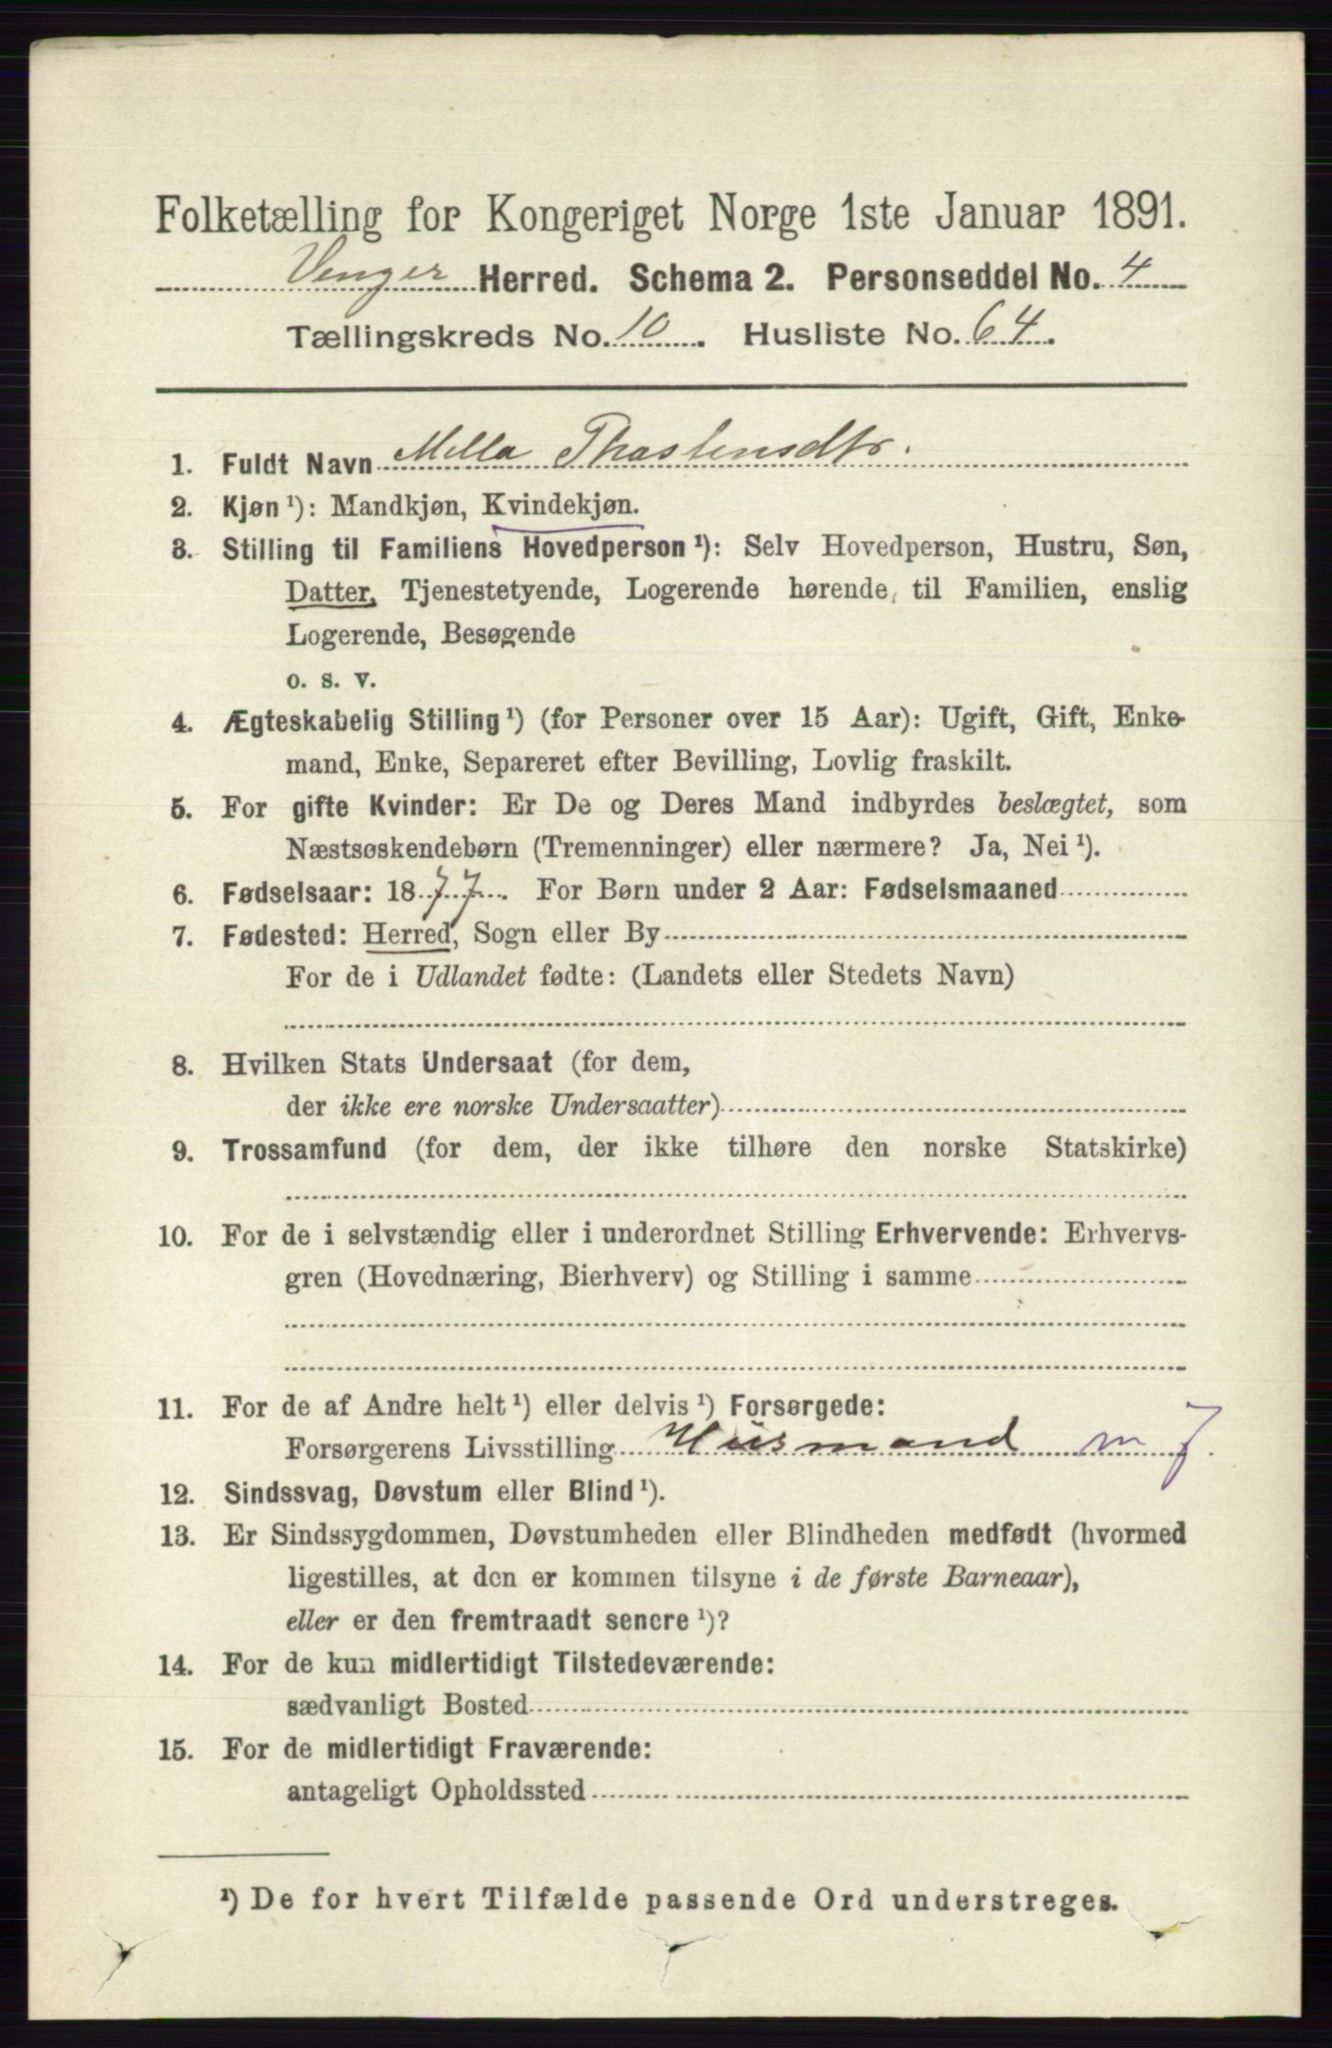 Folketælling for Kongeriget Norge 1ste Januar 1891.
Venger Herred. Schema 2. Personseddel No. 4
Tællingskreds No. 10. Husliste No. 64.
1. Fuldt Navn Mella Thostensdtr.
2. Kjøn ¹): Mandkjøn, Kvindekjøn.
3. Stilling til Familiens Hovedperson ¹): Selv Hovedperson, Hustru, Søn,
Datter, Tjenestetyende, Logerende hørende til Familien, enslig
Logerende, Besøgende
o. s. v.
4. Ægteskabelig Stilling ¹) (for Personer over 15 Aar): Ugift, Gift, Enke-
mand, Enke, Separeret efter Bevilling, Lovlig fraskilt.
5. For gifte Kvinder: Er De og Deres Mand indbyrdes beslægtet, som
Næstsøskendebørn (Tremenninger) eller nærmere? Ja, Nei ¹).
6. Fødselsaar: 1877. For Børn under 2 Aar: Fødselsmaaned
7. Fødested: Herred, Sogn eller By
For de i Udlandet fødte: (Landets eller Stedets Navn)
8. Hvilken Stats Undersaat (for dem,
der ikke ere norske Undersaatter)
9. Trossamfund (for dem, der ikke tilhøre den norske Statskirke)
10. For de i selvstændig eller i underordnet Stilling Erhvervende: Erhvervs-
gren (Hovednæring, Bierhverv) og Stilling i samme
11. For de af Andre helt ¹) eller delvis ¹) Forsørgede:
Forsørgerens Livsstilling Husmand m J.
12. Sindssvag, Døvstum eller Blind ¹).
13. Er Sindssygdommen, Døvstumheden eller Blindheden medfødt (hvormed
ligestilles, at den er kommen tilsyne i de første Barneaar),
eller er den fremtraadt senere ¹)?
14. For de kun midlertidigt Tilstedeværende:
sædvanligt Bosted
15. For de midlertidigt Fraværende:
antageligt Opholdssted
¹) De for hvert Tilfælde passende Ord understreges.